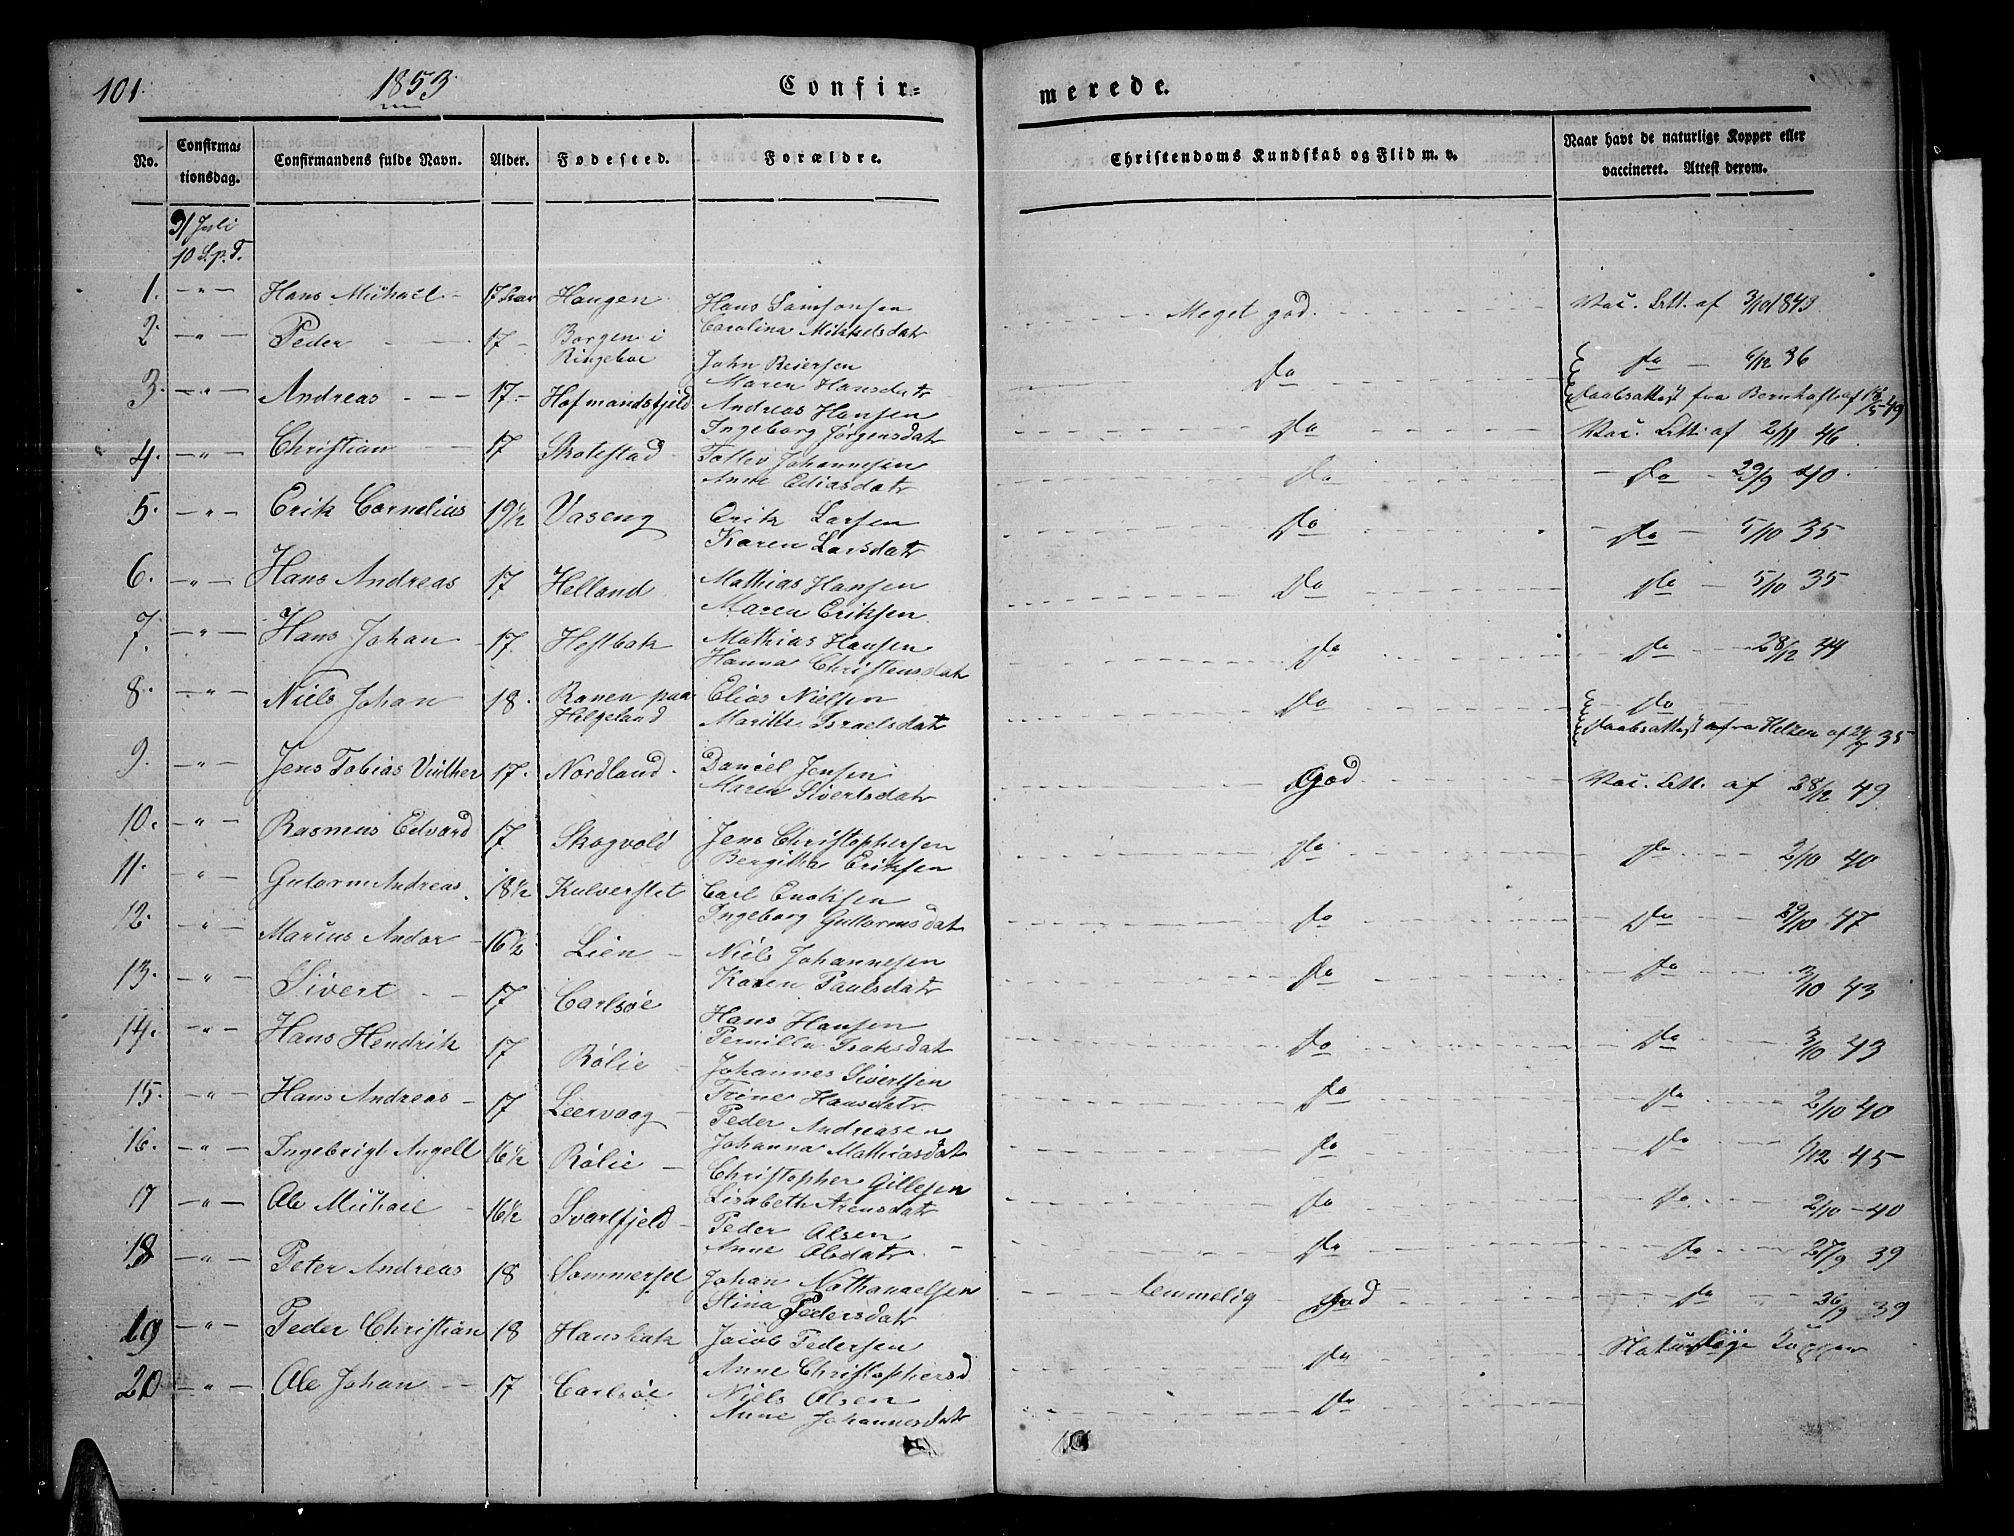 101.
1853
Confir=
merede.
No.
Confirma=
tionsdag.
Confirmandens fulde Navn.
Alder.
Fødested.
Forældre.
Christendoms Kundskab og Flid m. v.
Naar havt de naturlige Kopper eller
vaccineret. Attest derom.
31 Juli
10 S. p. T.
1. — " — Hans Michael — 17 Aar Haugen Hans Samsonsen
Carolina Mikkelsdatr
Meget god. Vac. Att. af 3/10 1843
2. — " — Peder — 17 — Borgen i
Ringeboe
John Reiersen
Maren Hansdatr
Do Do — 6/12 36
Daabsattest fra Bernhoft af 18/5 49
3. — " — Andreas — 17 — Hofmandsfjeld Andreas Hansen
Ingeborg Jørgensdatr
Do Vac. Att. af 2/11 46
4. — " — Christian — 17 Skotestad Tollev Johannesen
Anne Ediasdatr
Do — Do — 29/9 40.
5. — " — Erik Cornelius 19½ Vaseng Erik Larsen
Karen Larsdatr
Do — Do — 5/10 35
6. — " — Hans Andreas 17 Helland Mathias Hansen
Maren Eriksen
Do Do — 5/10 35
7. — " — Hans Johan — 17. Hestbak Mathias Hansen
Hanna Christensdatr
Do Do 28/12 44
8. — " — Niels Johan 18. Ranen paa
Helgeland
Elias Nielsen
Marith Israelsdatr
Do Do
Daabsattest fra Heltzen af 24/5 35
9. — " — Jens Tobias Vinther 17. Nordland. Daniel Jensen
Maren Sivertsdatr
God Vac. Att. af 28/12 49
10. — " — Rasmus Edvard 17 Skogvold Jens Christophersen
Bergitha Eriksen
Do Do 2/10 40
11. " — Gutorm Andreas. 18½ Kulverstet Carl Enoksen
Ingeborg Guttormsdatr
Do Do 29/10 47
12. — " — Marius Andor — 16½ Lien — Niels Johannesen
Karen Paulsdatr
Do Do 3/10 43
13. — " — Sivert — 17 Carlsøe Hans Hansen
Pernilla Isaksdatr
Do Do 3/10 43
14. — " — Hans Hendrik 17 Rølie — Johannes Sivertsen
Trine Hansdatr
Do Do 2/10 40
15. — " — Hans Andreas — 17 Leervaag — Peder Andreasen
Johanna Mathiasdatr
Do Do 1/12 45
16. — " — Ingebrigt Angell 16½ Rølie — Christopher Gillesen
Lisabeth Arensdatr
Do Do 2/10 — 40
17 — " — Ole Michael — 16½ Svartfjeld — Peder Olsen
Anne Olsdatr
Do Do 27/9 39
18 — " — Peter Andreas 18 Sommersel Johan Nathanaelsen
Stina Pedersdatr
Temmelig God Do 26/9 39
19 — " — Peder Christian 18 Hanskak Jacob Pedersen
Anne Christophersd
Do Naturlige Kopper
20 — " — Ole Johan — 17 Carlsøe Niels Olsen
Anne Johannesdatr
Do